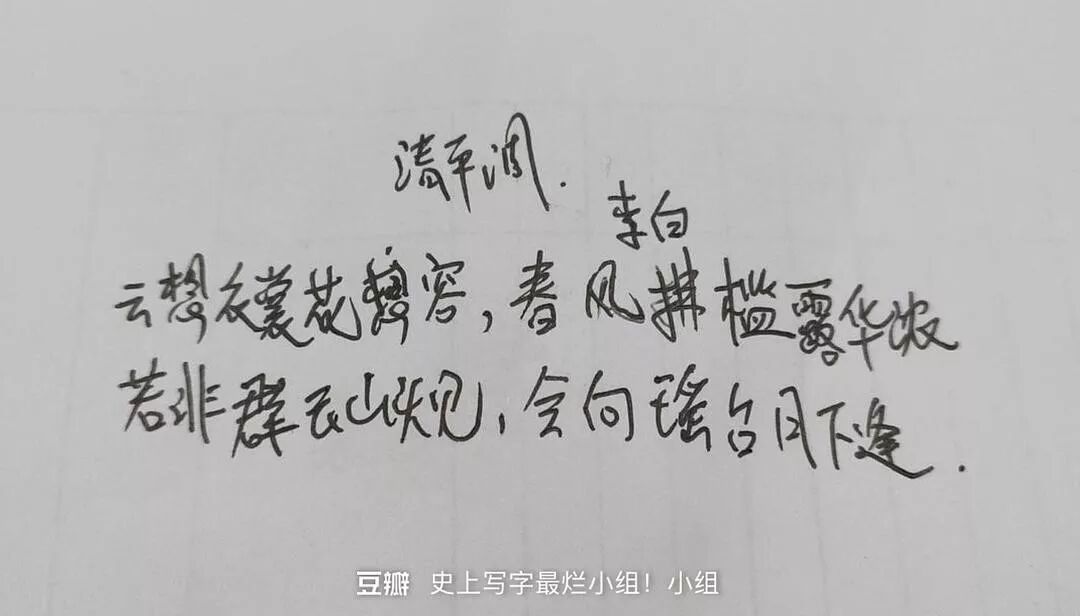 清平调.
李白
云想衣裳花想容,春风拂槛露华浓
若非群玉山头见,会向瑶台月下逢.
豆瓣 史上写字最烂小组!小组